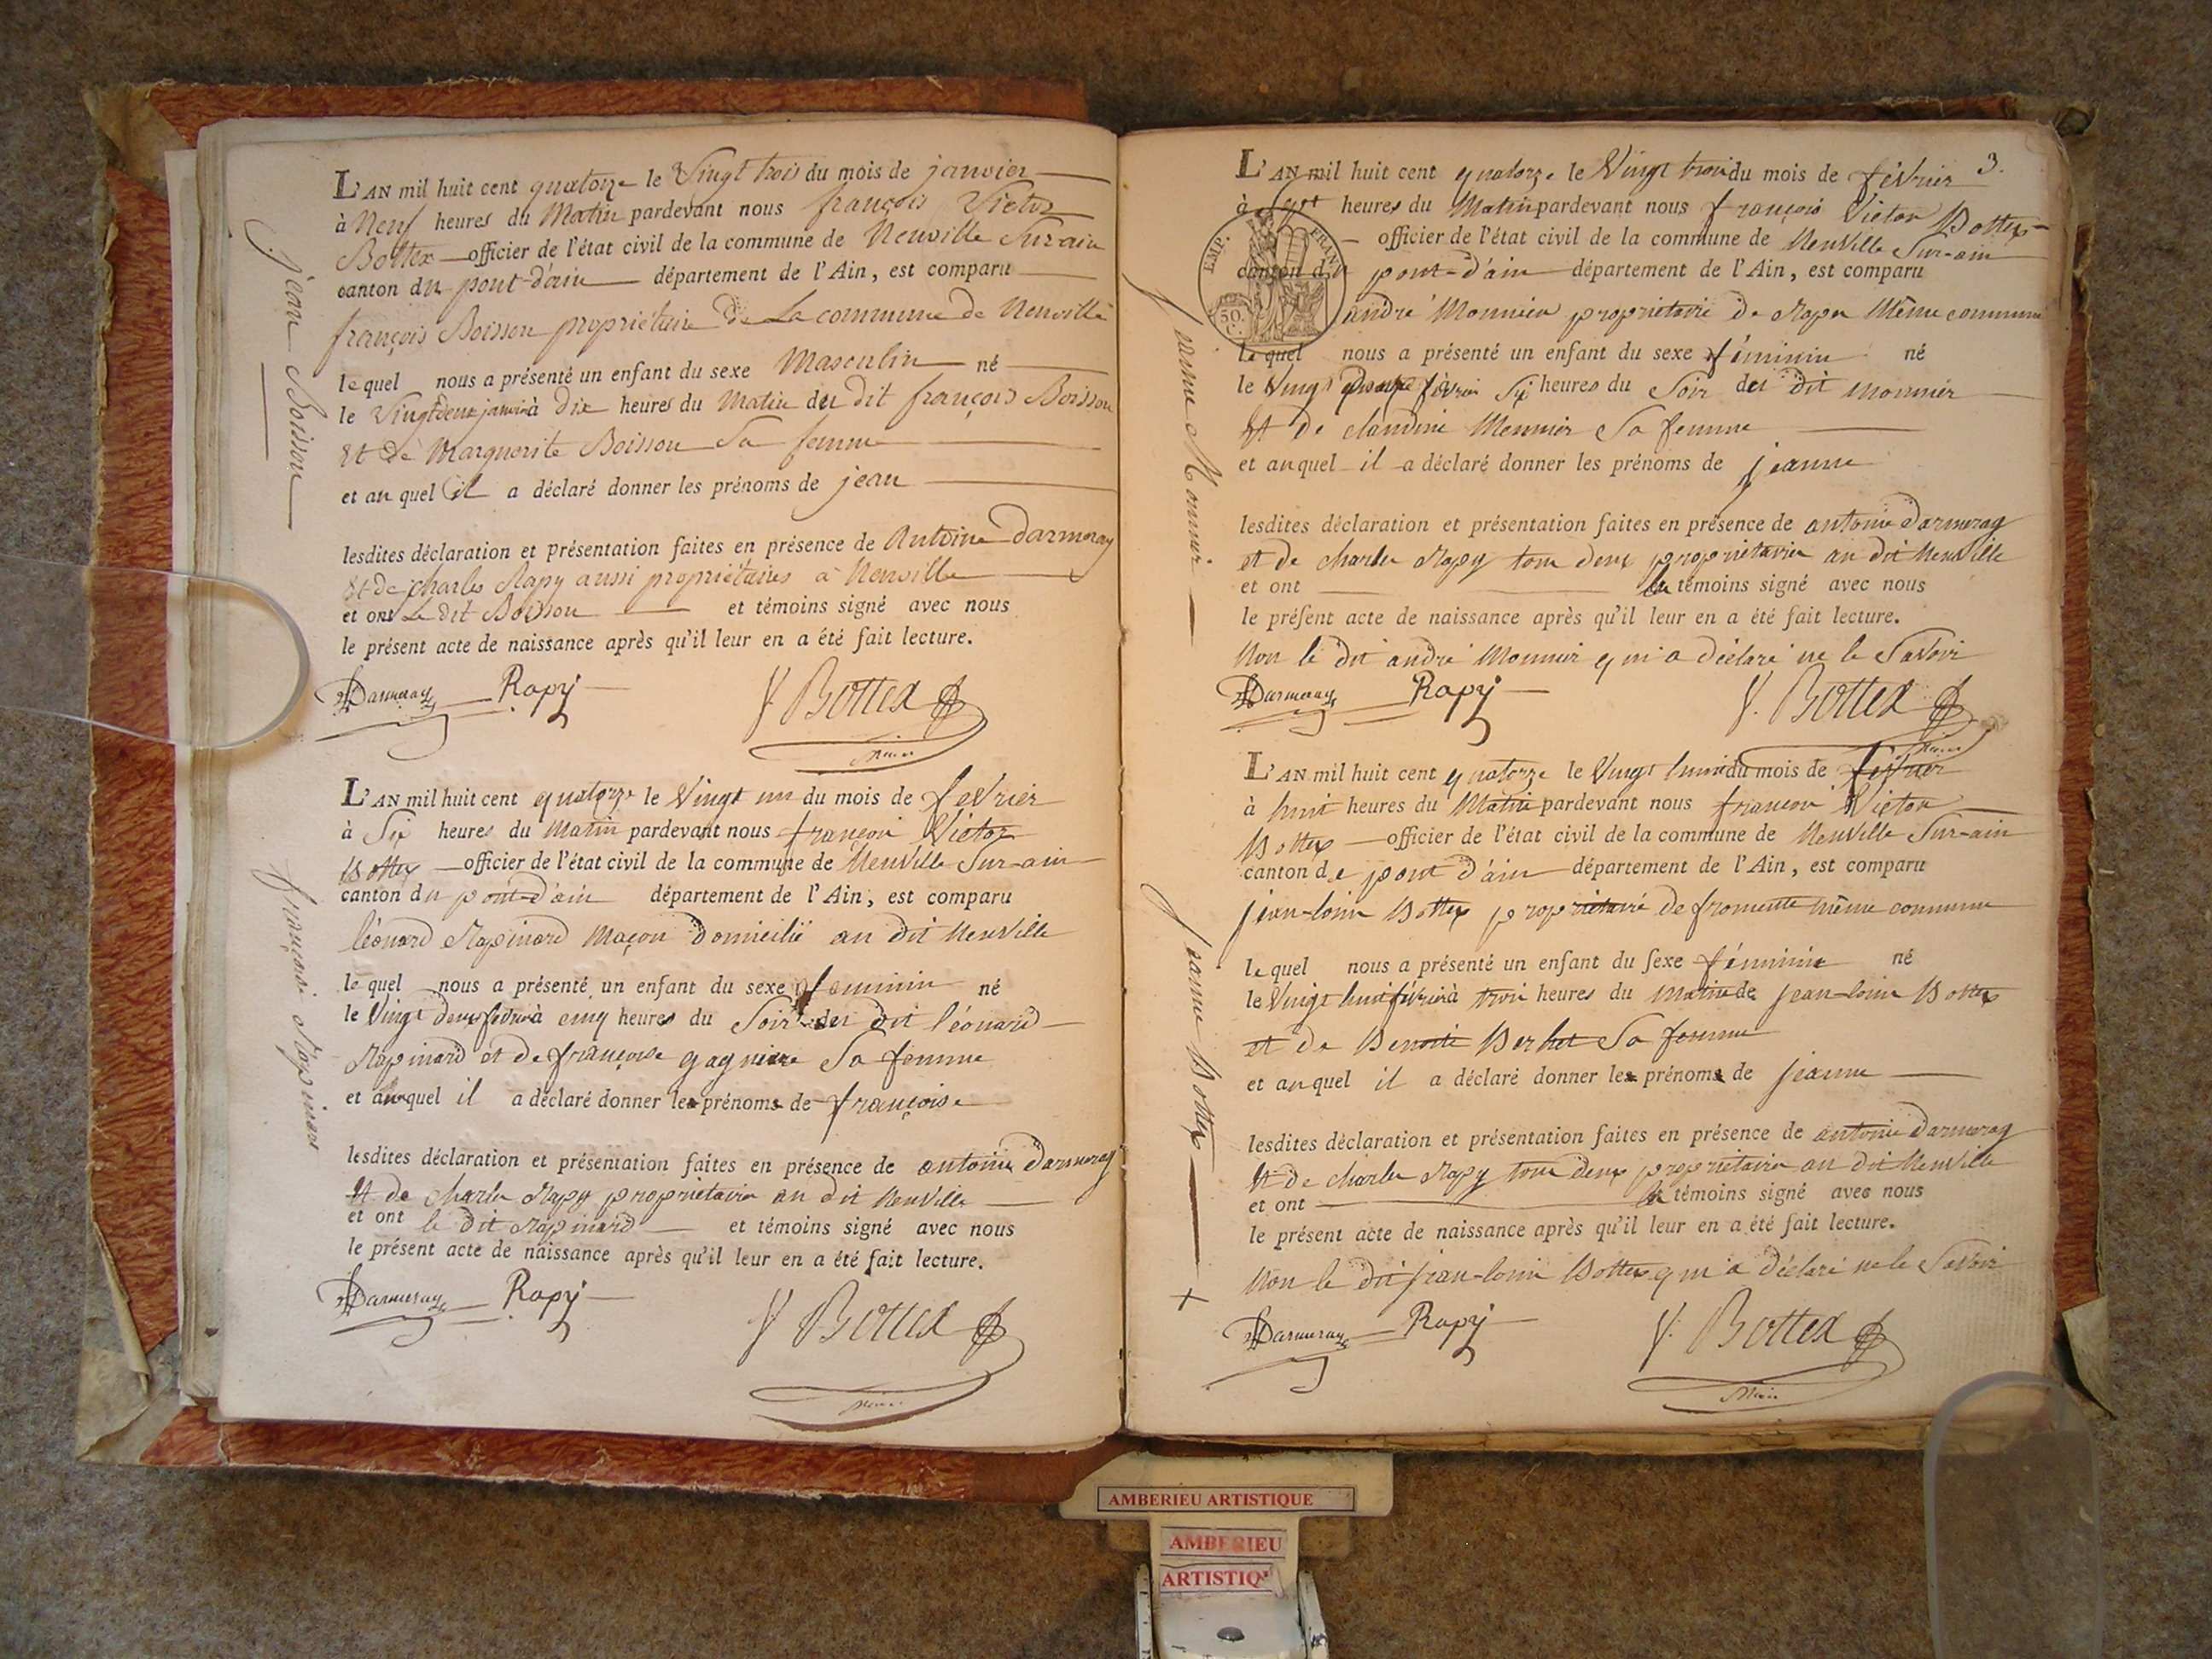 jean Boisson
L'AN mil huit cent quatorze le Vingt trois du mois de janvier
à Neuf heures du Matin pardevant nous françois Victor
Bottex officier de l'état civil de la commune de Neuville Sur ain
canton du pont-d'ain département de l'Ain, est comparu
françois Boisson propriétaire de La commune de Neuville
lequel nous a présenté un enfant du sexe Masculin né
le Vingtdeux janvier à Dix heures du Matin du dit françois Boisson
Et de Marguerite Boisson Sa femme
et au quel il a déclaré donner les prénoms de jean
lesdites déclaration et présentation faites en présence de Antoine Darmeray
Et de charles Rapy aussi propriétaires a Neuville
et ont Le dit Boisson et témoins signé avec nous
le présent acte de naissance après qu'il leur en a été fait lecture.
Darmeray Rapy V. Bottex
Maire
françoise Rapinard
L'AN mil huit cent quatorze le Vingt un du mois de fevrier
à Six heures du Matin pardevant nous françoi Victor
Bottex officier de l'état civil de la commune de Neuville Sur-ain
canton du pont-d'ain département de l'Ain, est comparu
léonard Rapinard Maçon Domicilié au dit Neuville
lequel nous a présenté un enfant du sexe feminin né
le Vingt fevrier à cinq heures du Soir du dit léonard
Rapinard et de françoise gagniere Sa femme
et auquel il a déclaré donner les prénoms de françoise
lesdites déclaration et présentation faites en présence de antoine Darmeray
Et de charle Rapy propriétaire au dit Neuville
et ont le dit Rapinard et témoins signé avec nous
le présent acte de naissance après qu'il leur en a été fait lecture.
Darmeray Rapy V. Bottex
Maire
3.
EMP. FRANÇ
50.
C.
jeanne Monnier
L'AN mil huit cent quatorze le Vingt troi du mois de février
à Sept heures du Matin pardevant nous françois Victor Bottex
officier de l'état civil de la commune de Neuville Sur-ain
canton du pont-d'ain département de l'Ain, est comparu
andré Monnier propriétaire de Même commune
lequel nous a présenté un enfant du sexe féminin né
le Vingt février Six heures du Soir du dit Monnier
Et de claudine Monnier Sa femme
et auquel il a déclaré donner les prénoms de jeanne
lesdites déclaration et présentation faites en présence de antoine Darmeray
et de charle Rapy tous deux propriétaire au dit Neuville
et ont les témoins signé avec nous
le présent acte de naissance après qu'il leur en a été fait lecture.
Non le dit andré Monnier qui a déclaré ne le Savoir
Darmeray Rapy V. Bottex
Maire
jeanne Bottex
L'AN mil huit cent quatorze le Vingt huit du mois de février
à huit heures du Matin pardevant nous françoi Victor
Bottex officier de l'état civil de la commune de Neuville Sur-ain
canton de pont d'ain département de l'Ain, est comparu
jean-louis Bottex propriétaire de fromente même commune
lequel nous a présenté un enfant du sexe féminin né
le Vingt huit février à troi heures du matin de jean-louis Bottex
et de Benoite Berlet Sa femme
et auquel il a déclaré donner les prénoms de jeanne
lesdites déclaration et présentation faites en présence de antoine Darmeray
Et de charle Rapy tous deux propriétaire au dit Neuville
et ont les témoins signé avec nous
le présent acte de naissance après qu'il leur en a été fait lecture.
Non le dit jean-louis Bottex qui a déclaré ne le Savoir
Darmeray Rapy V. Bottex
Maire
AMBERIEU ARTISTIQUE
AMBERIEU
ARTISTIQ